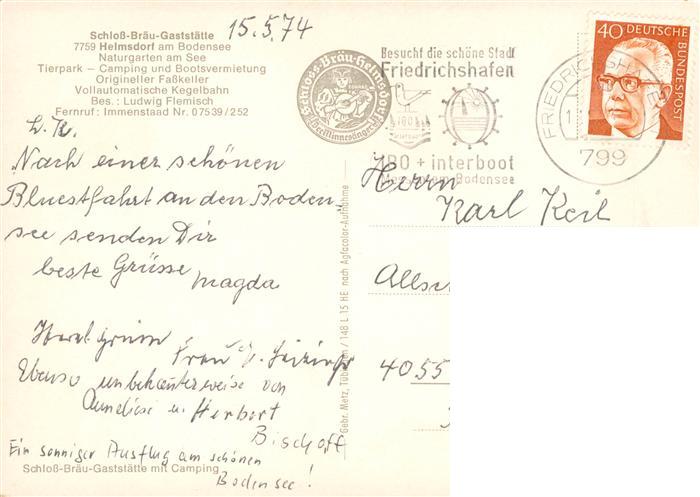 15.5.74
Schloß-Bräu-Gaststätte
7759 Helmsdorf am Bodensee
Naturgarten am See
Tierpark – Camping und Bootsvermietung
Origineller Faßkeller
Vollautomatische Kegelbahn
Bes.: Ludwig Flemisch
Fernruf: Immenstaad Nr. 07539/252
Schloss-Bräu-Helmsdorf
Besucht die schöne Stadt
Friedrichshafen
IBO
IBO + interboot
Messen am Bodensee
FRIEDRICHSHAFEN
1
799
40 DEUTSCHE
BUNDESPOST
L. K.
Nach einer schönen
Bluestfahrt an den Boden
see senden Dir
beste Grüsse Magda
Herrn
Karl Keil
Allsc
4055
Frau
Ebenso unbekannterweise von
Anneliese u. Herbert
Bischoff
Ein sonniger Ausflug am schönen
Bodensee!
Schloß-Bräu-Gaststätte mit Camping
Gebr. Metz, Tübingen / 148 L 15 HE nach Agfacolor-Aufnahme